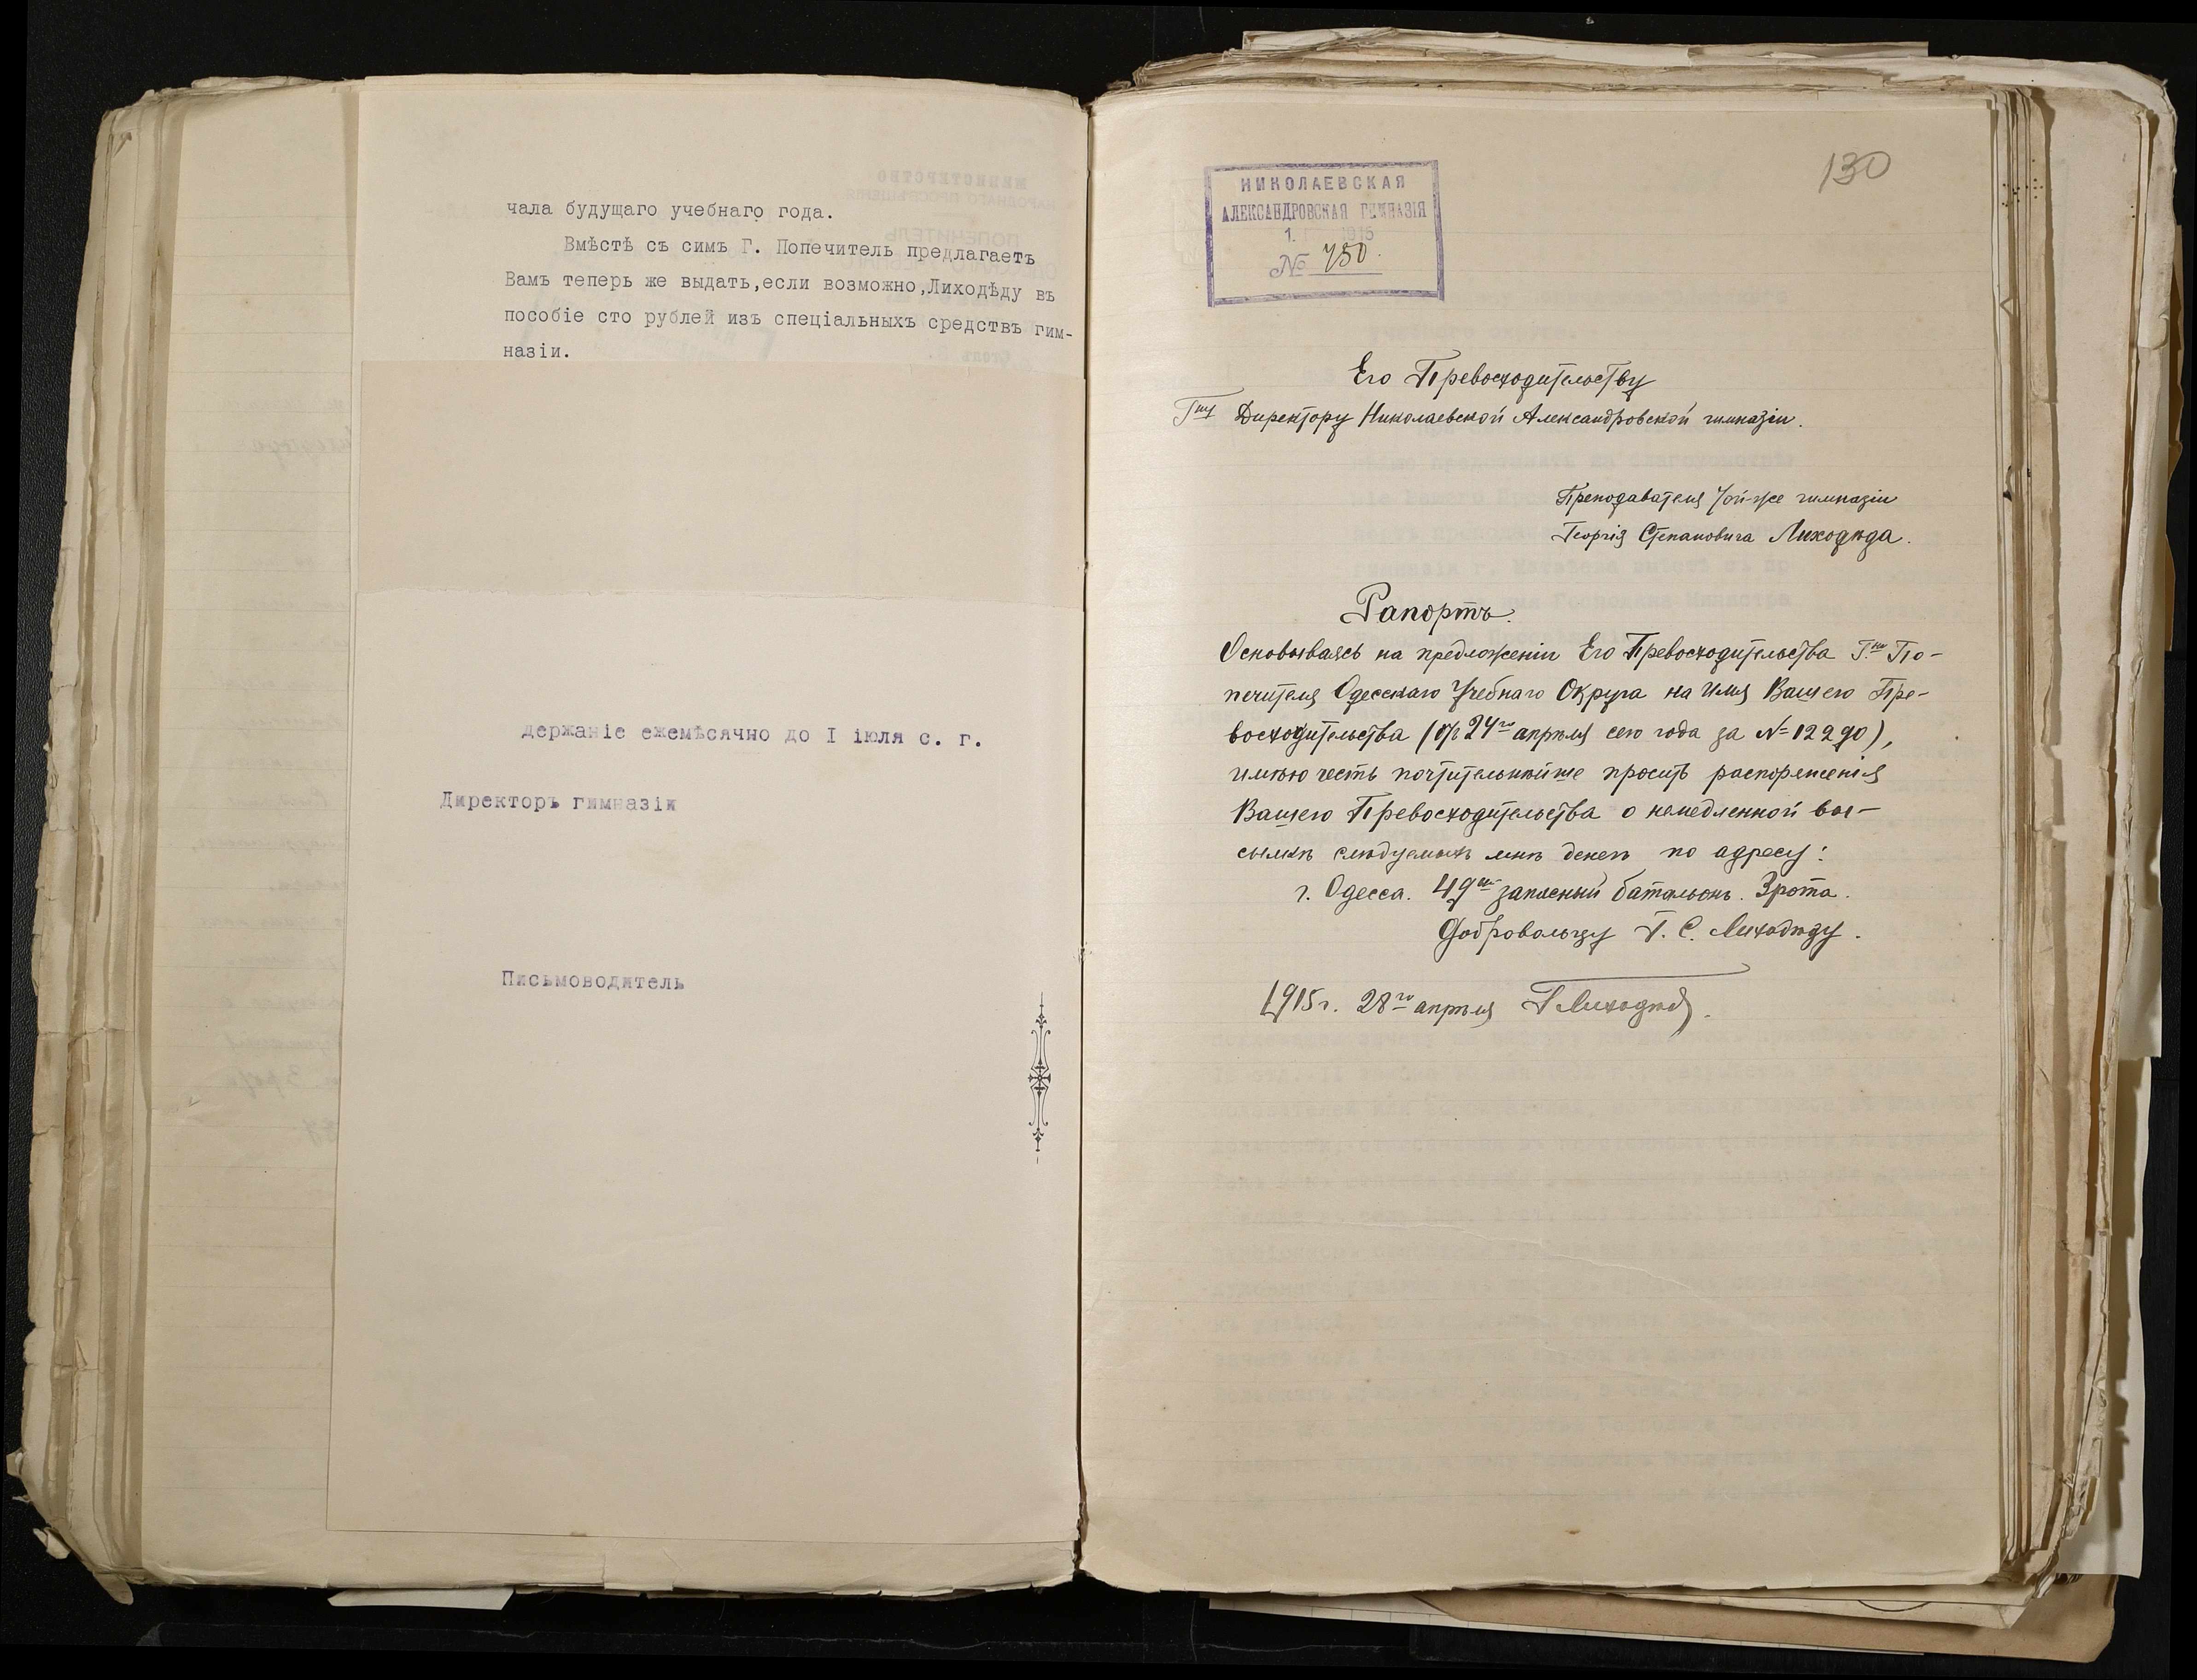 чала будущаго учебнаго года.
Вмѣстѣ съ симъ Г. Попечитель предлагаетъ
Вамъ теперь же выдать,если возможно,Лиходѣду въ
пособіе сто рублей изъ спеціальныхъ средствъ гим-
назіи.
держаніе ежемѣсячно до I іюля с. г.
Директоръ гимназіи
Письмоводитель
130
НИКОЛАЕВСКАЯ
АЛЕКСАНДРОВСКАЯ ГИМНАЗІЯ
1. 1915
№ 750.
Его Превосходительству
Гну Директору Николаевской Александровской гимназіи.
Преподавателя той-же гимназіи
Георгія Степановича Лиходѣда.
Рапортъ.
Основываясь на предложеніи Его Превосходительства Г.на По-
печителя Одесскаго Учебнаго Округа на имя Вашего Пре-
восходительства (отъ 24го апрѣля сего года за № 12290),
имѣю честь почтительнѣйше просить распоряженія
Вашего Превосходительства о немедленной вы-
сылкѣ слѣдуемыхъ мнѣ денегъ по адресу:
г. Одесса. 49ый запасный батальонъ. 3 рота.
Добровольцу Г. С. Лиходѣду.
1915 г. 28го апрѣля Г Лиходѣд.